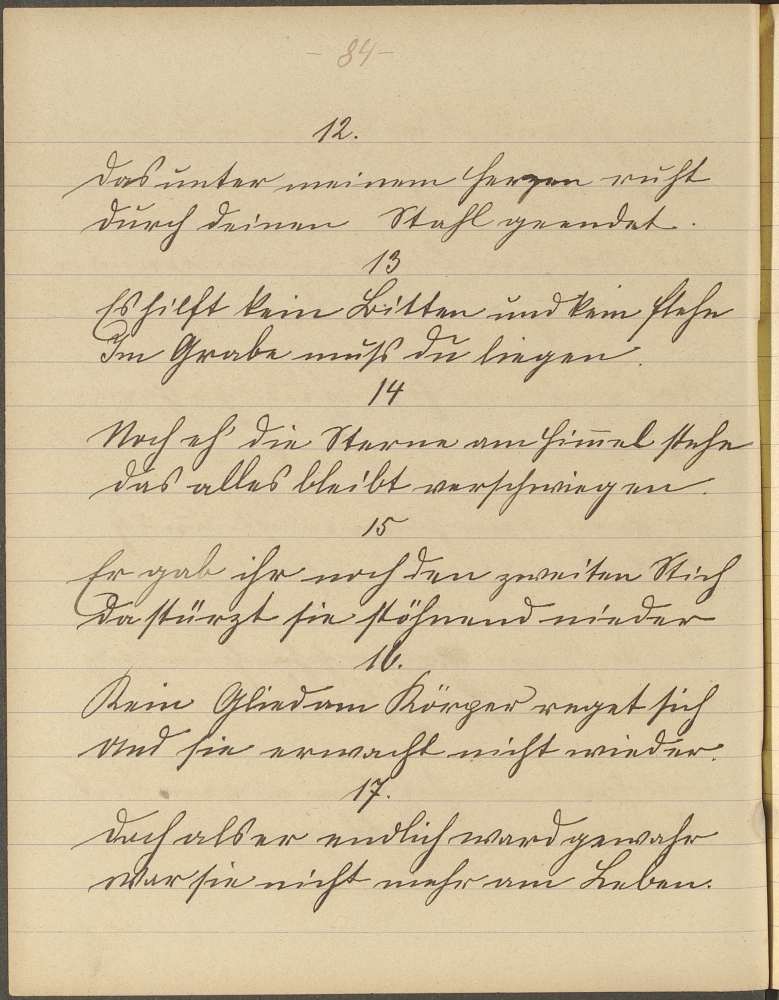 - 84 -
12.
Das unter meinem Herzen ruht
Durch deinen Stahl geendet.
13
Es hilft kein Bitten und kein flehn
Im Grabe muß du liegen.
14
Noch eh' die Sterne am Himmel stehn
das alles bleibt verschwiegen.
15
Er gab ihr noch den zweiten Stich
Da stürzt sie stöhnend nieder
16.
Kein Glied am Körper reget sich
Und sie erwacht nicht wieder.
17.
Doch als er endlich ward gewahr
War sie nicht mehr am Leben.